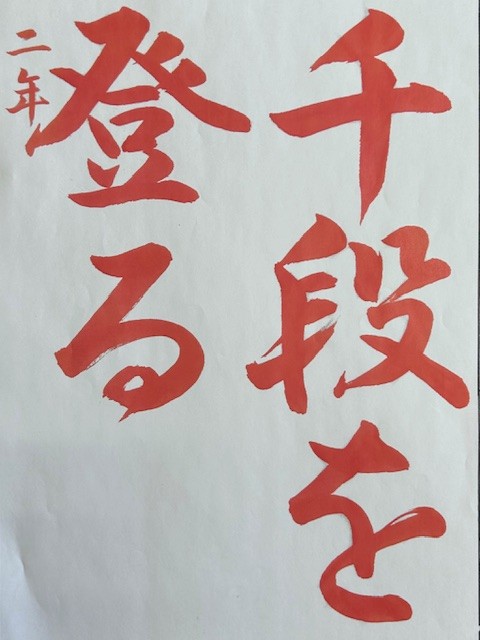 千段を
登る
二年